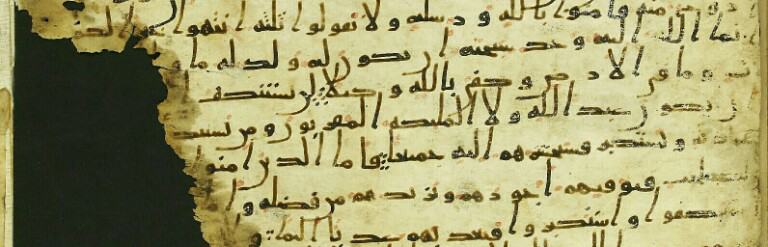 و روح منه فامنوا بالله و رسله و لا تقولوا ثلثه انتهوا خيرا لكم
انما الله اله و حد سبحنه ان يكون له و لد له ما
ت و ما في الا ر ض و كفى بالله و كيلا لن يستنكف
ن يكون عبدا لله و لا الملئكه المقر بون و من يستنكف
و يستكبر فسيحشرهم اليه جميعا فا ما الذين امنوا
فيوفيهم اجو ر هم و يز يد هم من فضله و ا
ستنكفوا و استكبر وا فيعذ بهم عذ ابا اليما و